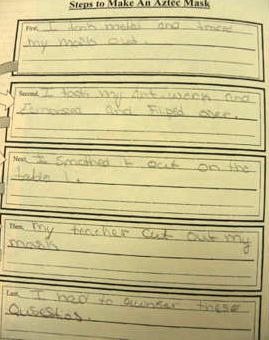 Steps to Make An Aztec Mask
First, I took metal and trace
my mask out.
Second, I took my art work and
and fliped over.
Next, I smothed it out on the
table.
Then, my teacher cut out my
mask
Last, I had to these